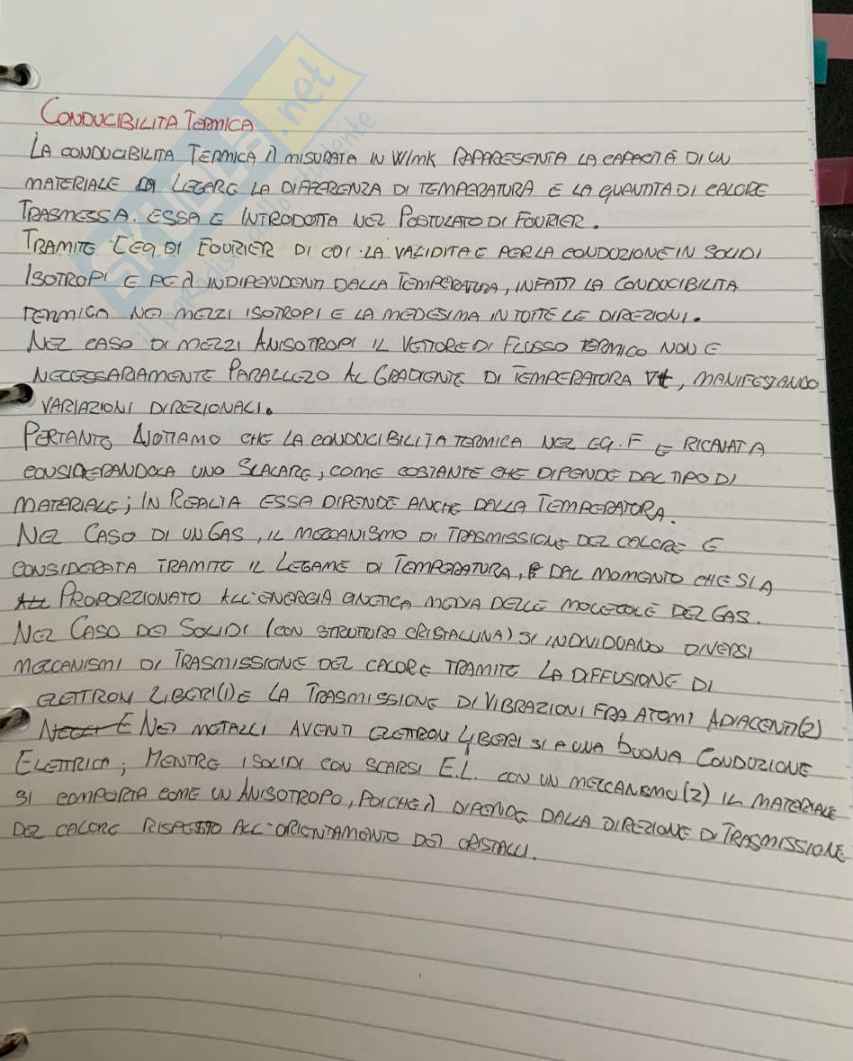 CONDUCIBILITA TERMICA
LA CONDUCIBILITA TERMICA λ MISURATA IN W/mK RAPPRESENTA LA CAPACITÀ DI UN
MATERIALE DI LEGARE LA DIFFERENZA DI TEMPERATURA E LA QUANTITA DI CALORE
TRASMESSA. ESSA E INTRODOTTA NEL POSTULATO DI FOURIER.
TRAMITE L'EQ. DI FOURIER DI CUI LA VALIDITA E PER LA CONDUZIONE IN SOLIDI
ISOTROPI E PER λ INDIPENDENTI DALLA TEMPERATURA, INFATTI LA CONDUCIBILITA
TERMICA NEI MEZZI ISOTROPI E LA MEDESIMA IN TUTTE LE DIREZIONI.
NEL CASO DI MEZZI ANISOTROPI IL VETTORE DI FLUSSO TERMICO NON E
NECCESSARIAMENTE PARALLELO AL GRADIENTE DI TEMPERATURA ∇t, MANIFESTANDO
VARIAZIONI DIREZIONALI.
PERTANTO NOTIAMO CHE LA CONDUCIBILITA TERMICA NEL EQ. F E RICAVATA
CONSIDERANDOLA UNO SCALARE, COME COSTANTE CHE DIPENDE DAL TIPO DI
MATERIALE; IN REALTA ESSA DIPENDE ANCHE DALLA TEMPERATURA.
NEL CASO DI UN GAS, IL MECCANISMO DI TRASMISSIONE DEL CALORE E
CONSIDERATA TRAMITE IL LEGAME DI TEMPERATURA, DAL MOMENTO CHE SIA
PROPORZIONATO ALL'ENERGIA CINETICA MEDIA DELLE MOLECOLE DEL GAS.
NEL CASO DEI SOLIDI (CON STRUTTURA CRISTALLINA) SI INDIVIDUANO DIVERSI
MECCANISMI DI TRASMISSIONE DEL CALORE TRAMITE LA DIFFUSIONE DI
ELETTRONI LIBERI(1) E LA TRASMISSIONE DI VIBRAZIONI FRA ATOMI ADIACENTI(2)
NEI METALLI AVENTI ELETTRONI LIBERI SI A UNA BUONA CONDUZIONE
ELETTRICA; MENTRE I SOLIDI CON SCARSI E.L. CON UN MECCANISMO(2) IL MATERIALE
SI COMPORTA COME UN ANISOTROPO, POICHE λ DIPENDE DALLA DIREZIONE DI TRASMISSIONE
DEL CALORE RISPETTO ALL'ORIENTAMENTO DEI CRISTALLI.